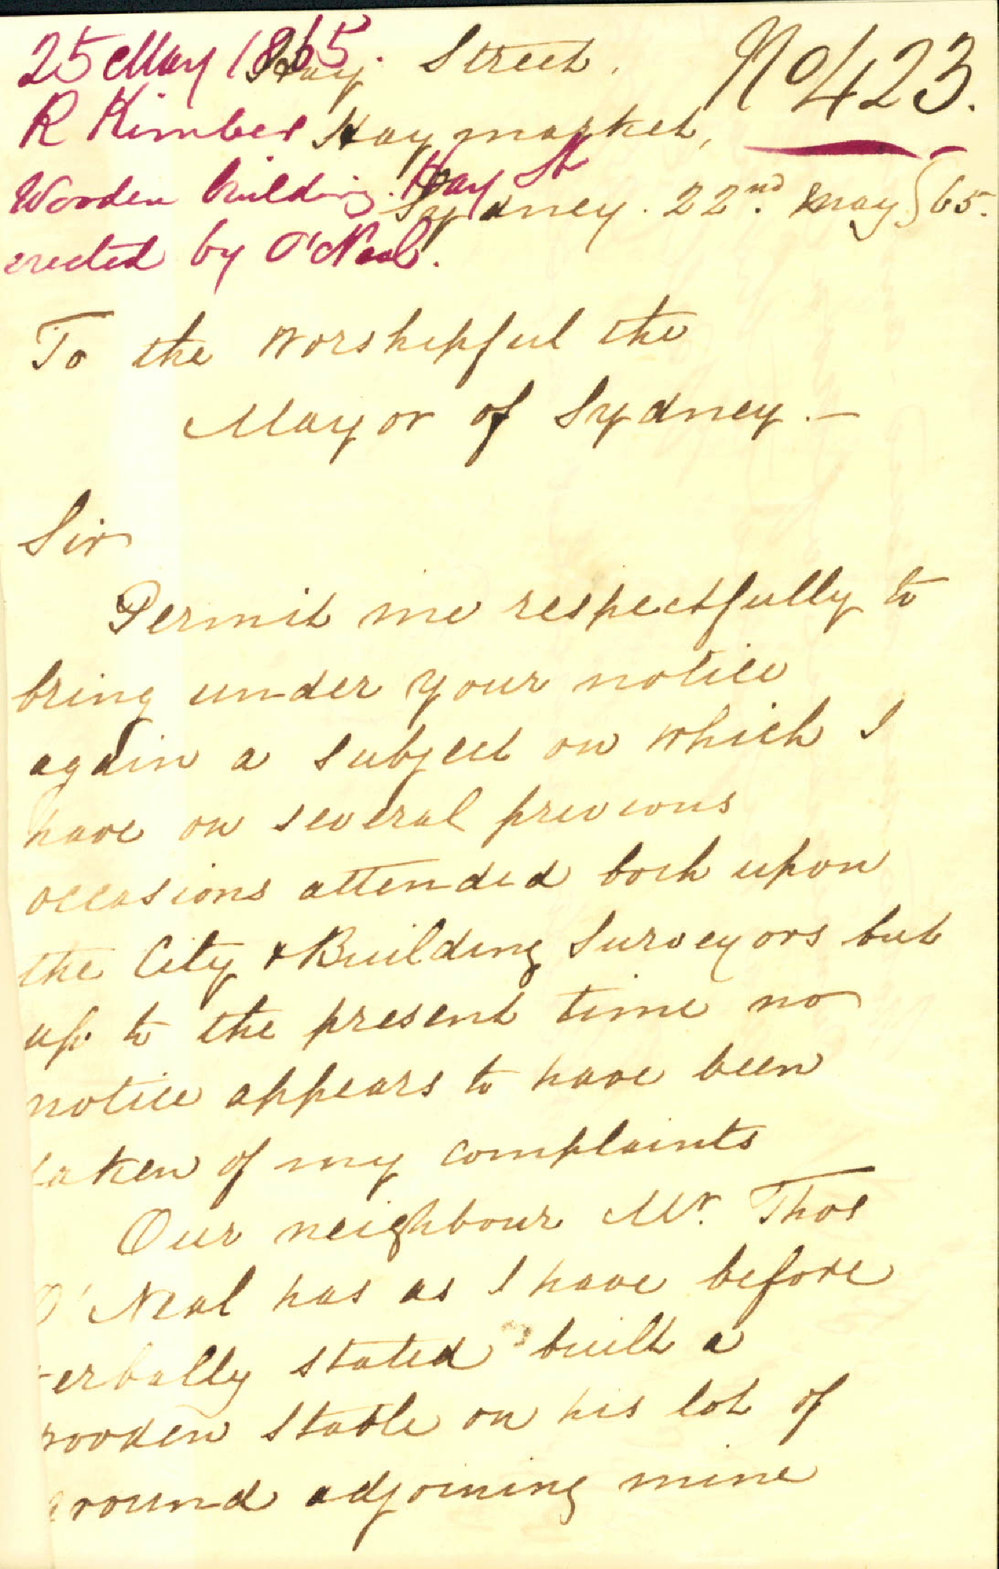 25 May 1865.
R Kimber
Wooden building Hay St
erected by O'Neal.
No 423.
Hay Street.
Haymarket,
Sydney. 22nd. May /65.
To the Worshipful the
Mayor of Sydney.—
Sir
Permit me respectfully to
bring under your notice
again a subject on which I
have on several previous
occasions attended both upon
the City & Building Surveyors but
up to the present time no
notice appears to have been
taken of my complaints
Our neighbour Mr. Thos
O'Neal has as I have before
verbally stated built a
wooden stable on his lot of
ground adjoining mine